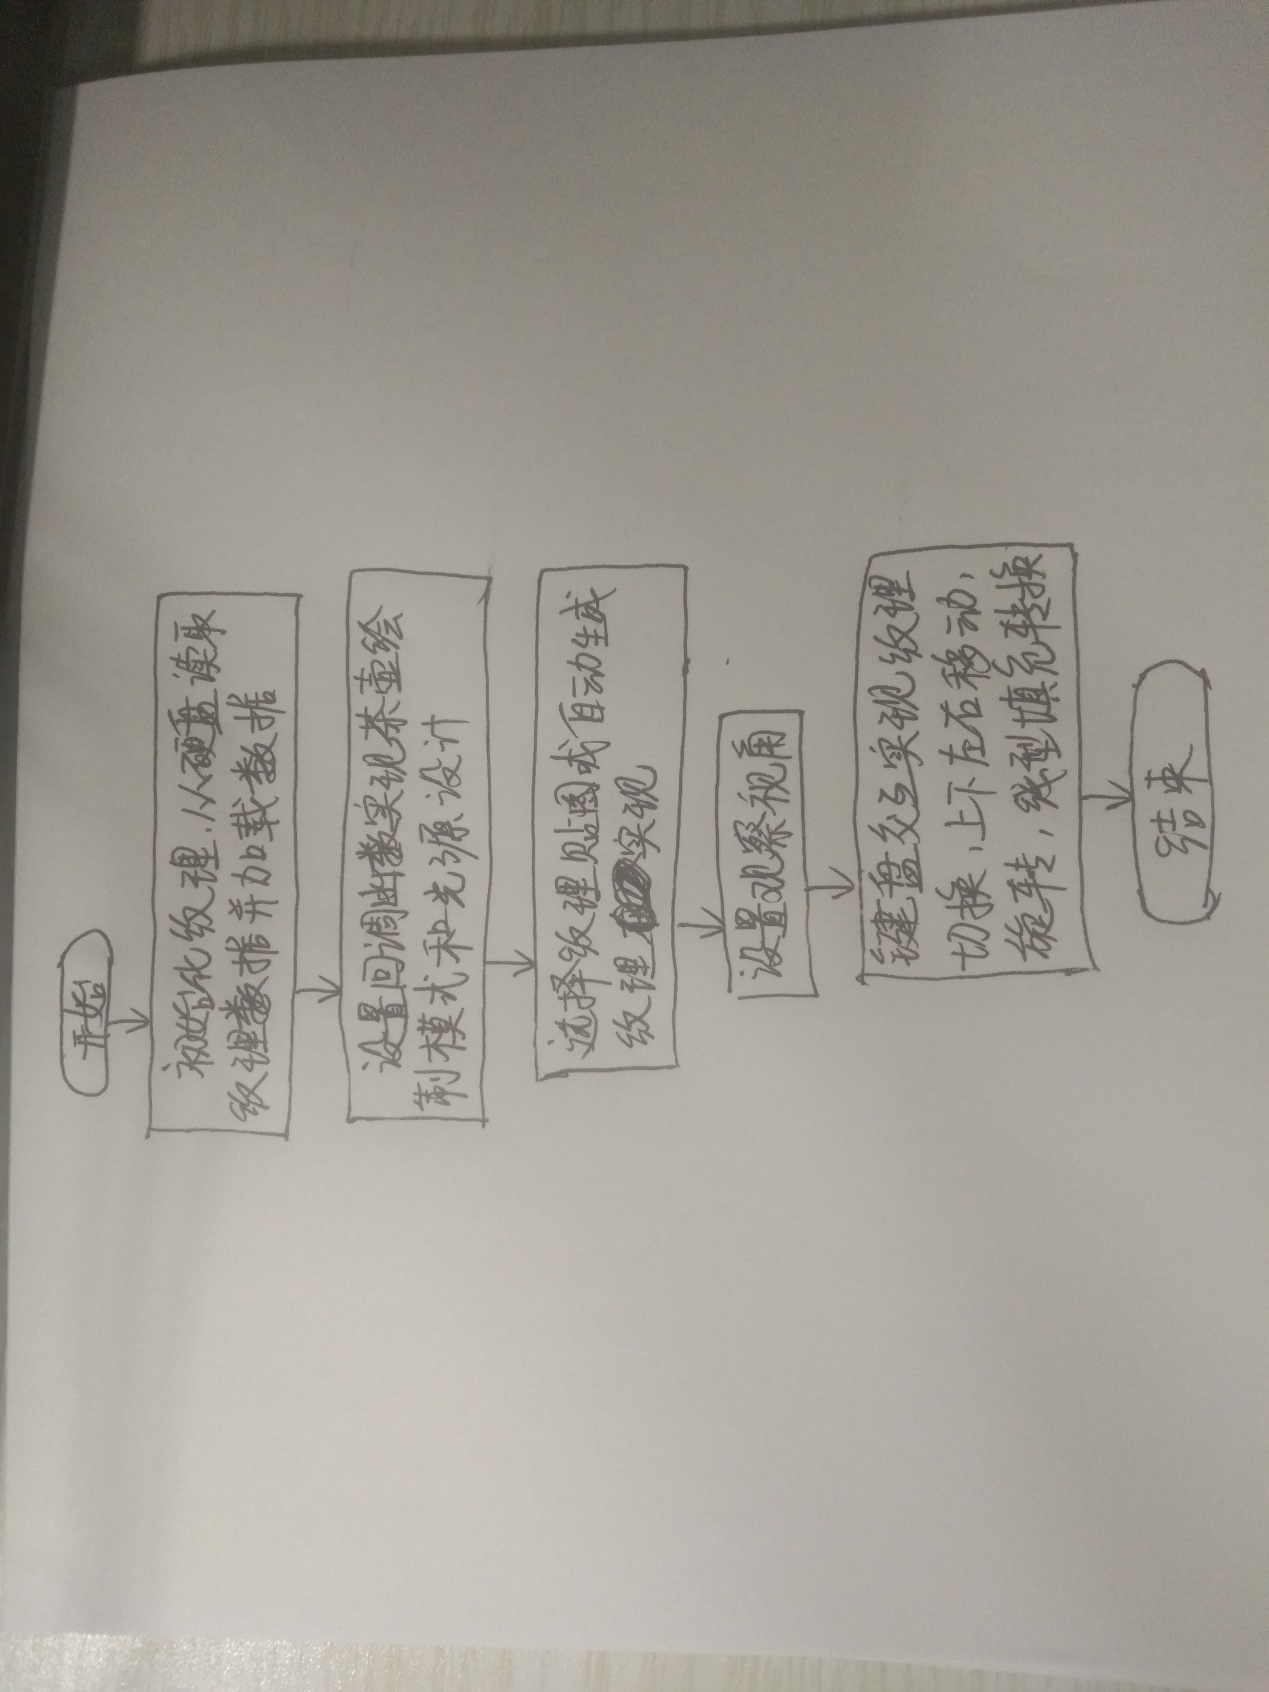 开始
初始化纹理,从硬盘读取
纹理数据并加载数据
设置回调函数实现茶壶绘
制模式和光源设计
选择纹理贴图或自动生成
纹理实现
设置观察视角
键盘交互实现纹理
切换,上下左右移动,
旋转,线型填充转换
结束